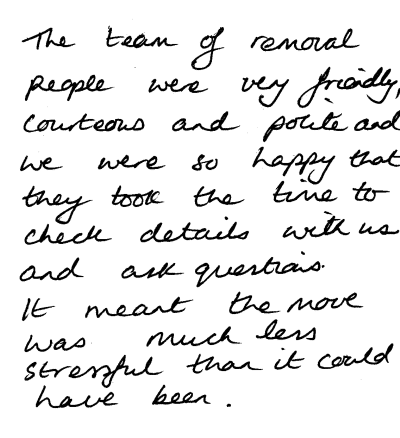 The team of removal
people were very friendly,
courteous and polite and
we were so happy that
they took the time to
check details with us
and ask questions.
It meant the move
was much less
stressful than it could
have been.